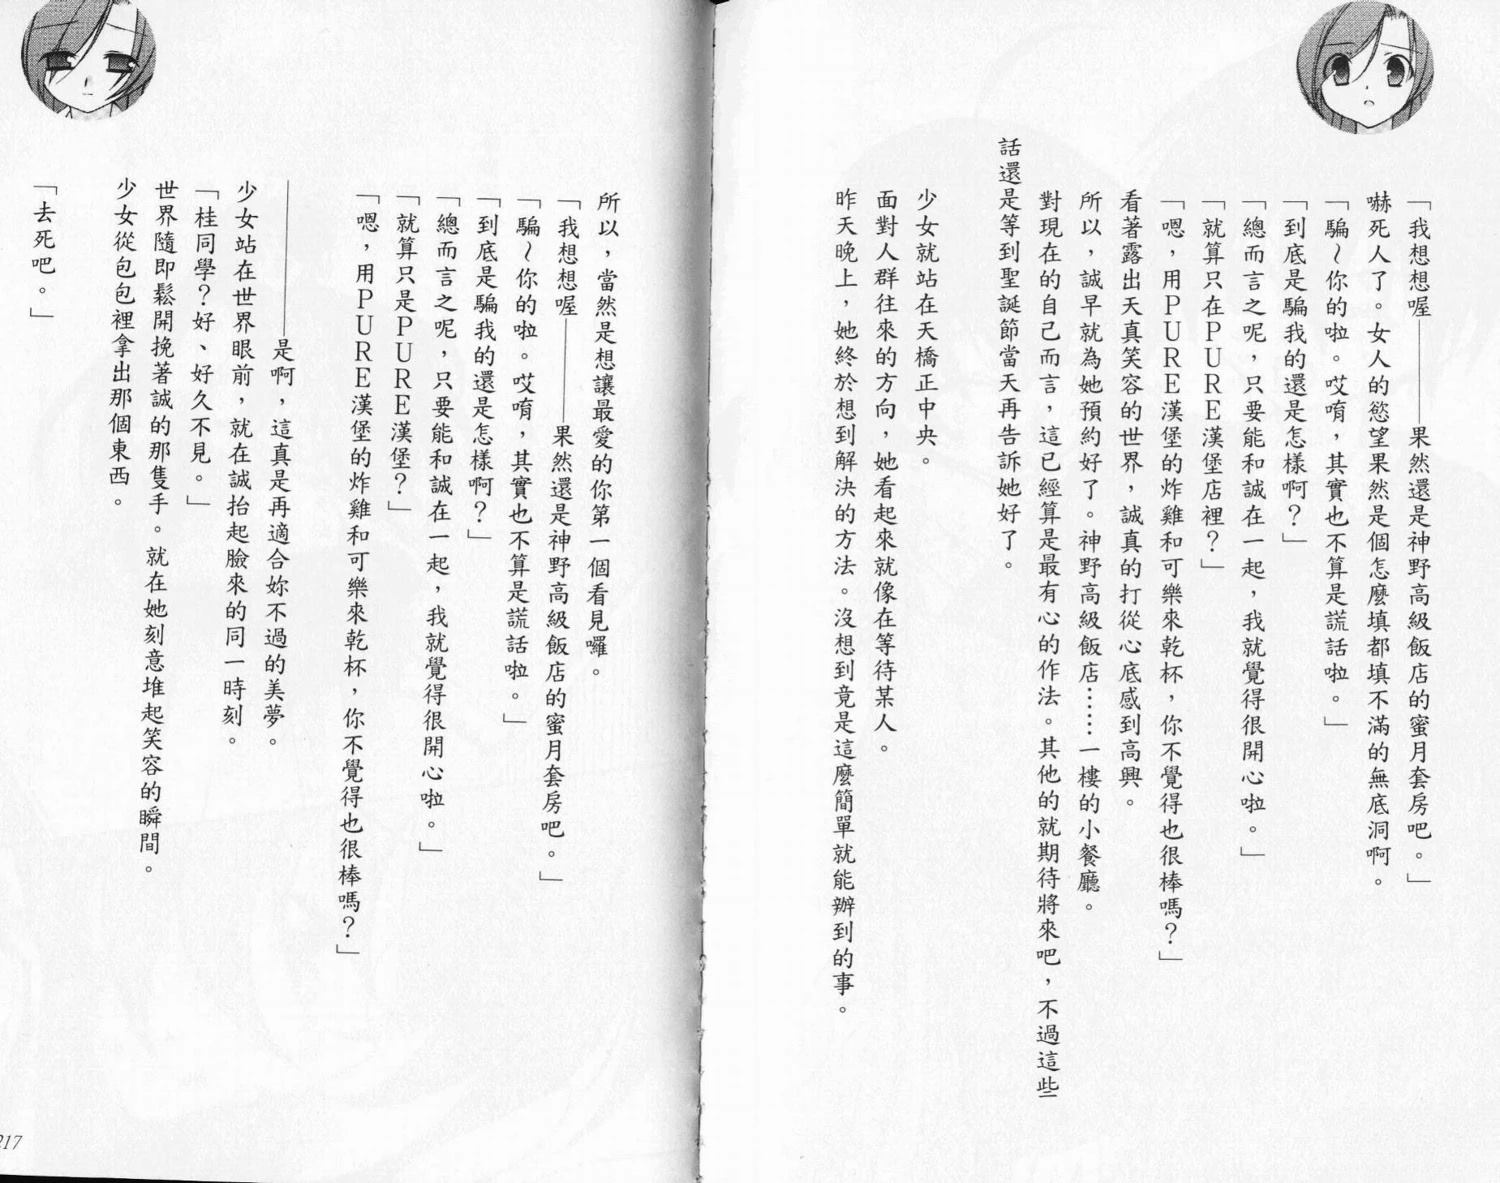 「我想想喔————果然還是神野高級飯店的蜜月套房吧。」
嚇死人了。女人的慾望果然是個怎麼填都填不滿的無底洞啊。
「騙～你的啦。哎唷，其實也不算是謊話啦。」
「到底是騙我的還是怎樣啊？」
「總而言之呢，只要能和誠在一起，我就覺得很開心啦。」
「就算只在ＰＵＲＥ漢堡店裡？」
「嗯，用ＰＵＲＥ漢堡的炸雞和可樂來乾杯，你不覺得也很棒嗎？」
看著露出天真笑容的世界，誠真的打從心底感到高興。
所以，誠早就為她預約好了。神野高級飯店……一樓的小餐廳。
對現在的自己而言，這已經算是最有心的作法。其他的就期待將來吧，不過這些
話還是等到聖誕節當天再告訴她好了。
少女就站在天橋正中央。
面對人群往來的方向，她看起來就像在等待某人。
昨天晚上，她終於想到解決的方法。沒想到竟是這麼簡單就能辦到的事。
所以，當然是想讓最愛的你第一個看見囉。
「我想想喔————果然還是神野高級飯店的蜜月套房吧。」
「騙～你的啦。哎唷，其實也不算是謊話啦。」
「到底是騙我的還是怎樣啊？」
「總而言之呢，只要能和誠在一起，我就覺得很開心啦。」
「就算只是ＰＵＲＥ漢堡？」
「嗯，用ＰＵＲＥ漢堡的炸雞和可樂來乾杯，你不覺得也很棒嗎？」
——————是啊，這真是再適合妳不過的美夢。
少女站在世界眼前，就在誠抬起臉來的同一時刻。
「桂同學？好、好久不見。」
世界隨即鬆開挽著誠的那隻手。就在她刻意堆起笑容的瞬間。
少女從包包裡拿出那個東西。
「去死吧。」
217